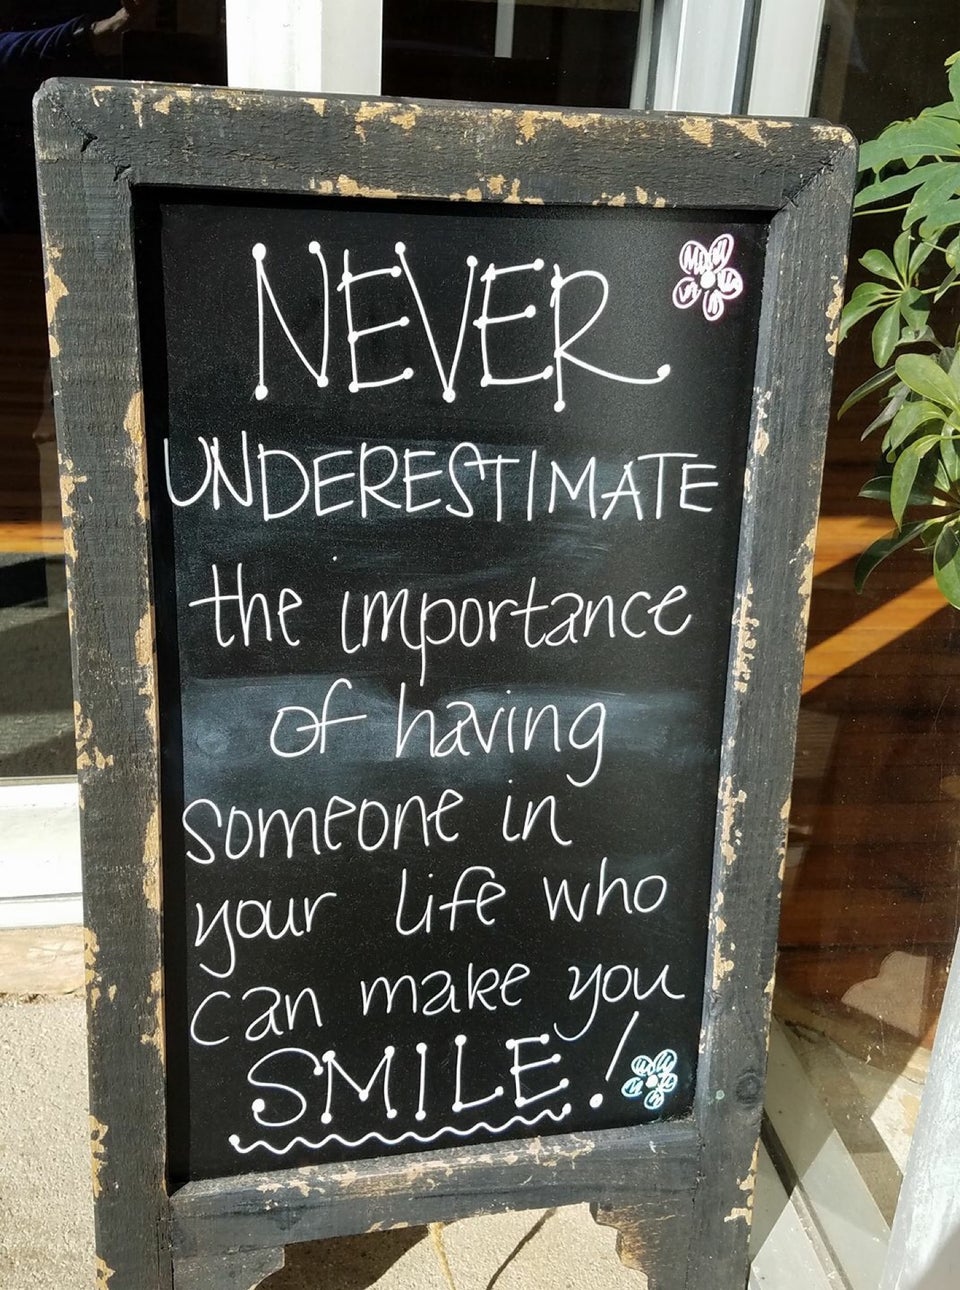 NEVER
UNDERESTIMATE
the importance
of having
someone in
your life who
can make you
SMILE!